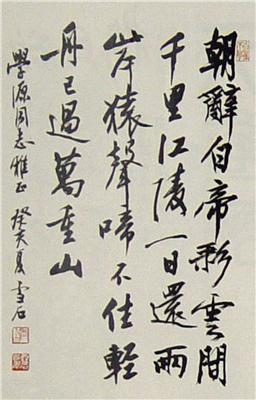 朝辭白帝彩雲間
千里江陵一日還兩
岸猿聲啼不住輕
舟已過萬重山
學源同志雅正 癸亥夏雪石